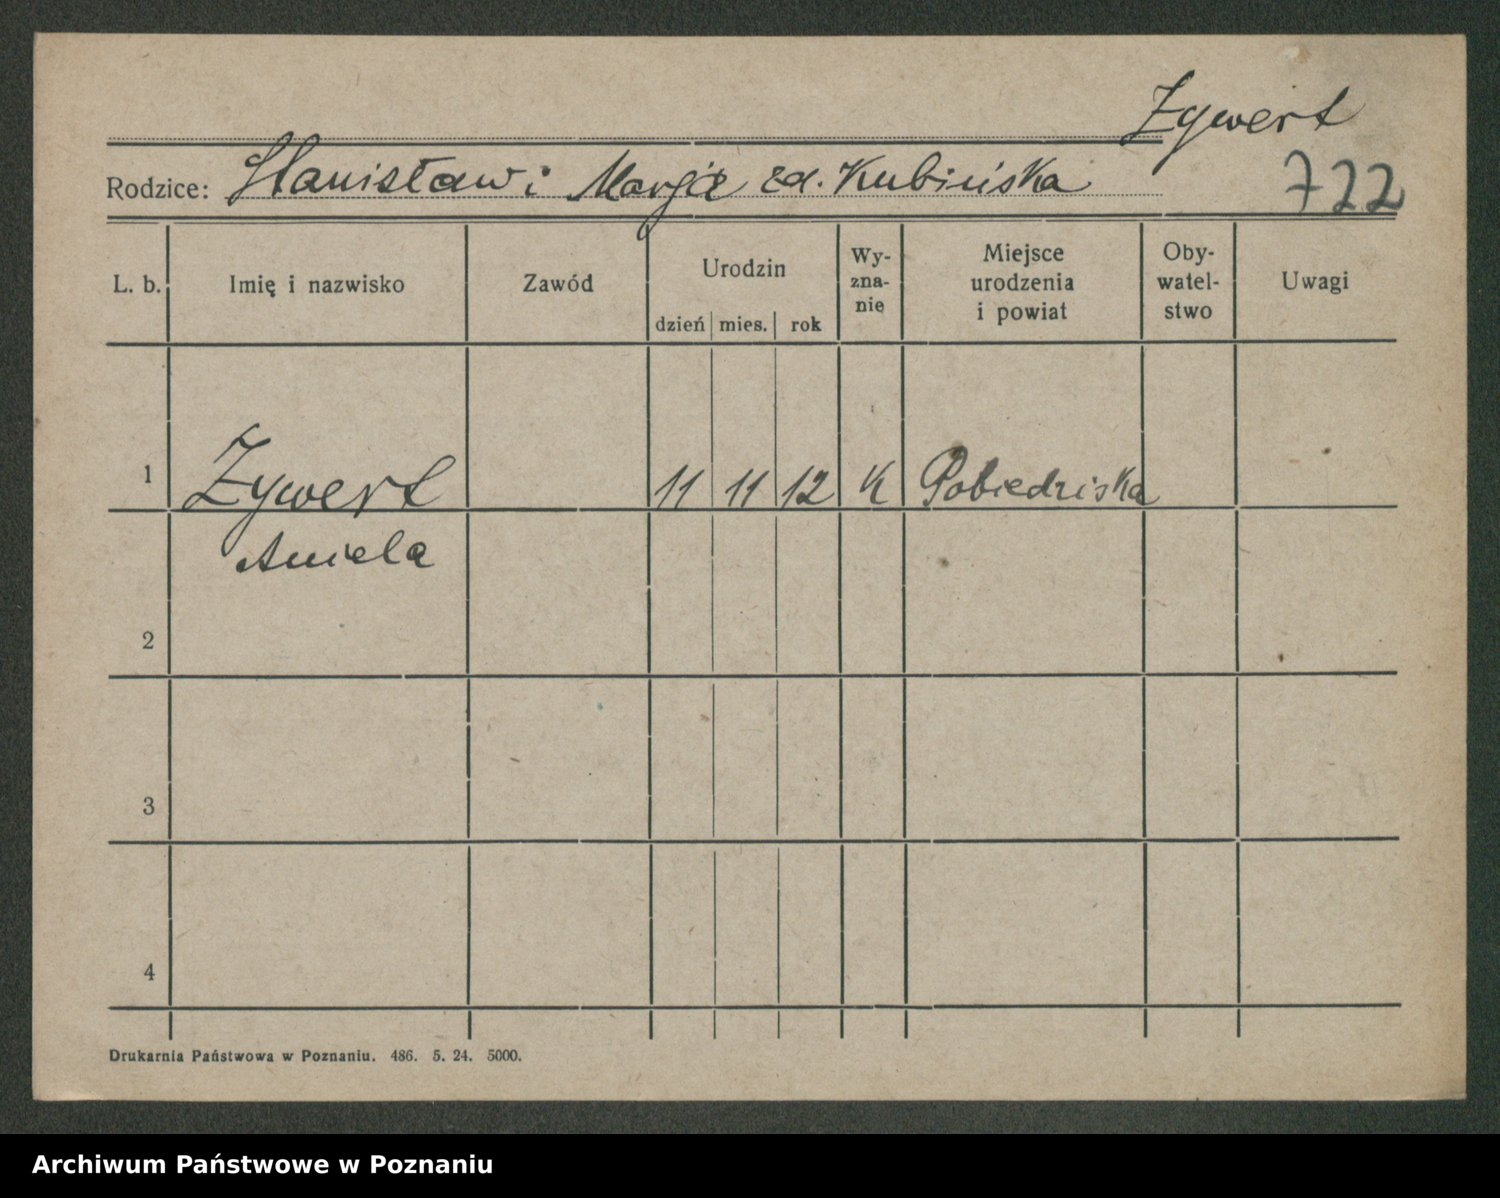 Zywert
Rodzice: Stanisław i Marja zd. Kubińska
722
L. b. Imię i nazwisko Zawód Urodzin dzień mies. rok Wy-zna-nie Miejsce urodzenia i powiat Oby-watel-stwo Uwagi
1 Zywert 11 11 12 K Pobiedziska
Aniela
2
3
4
Drukarnia Państwowa w Poznaniu. 486. 5. 24. 5000.
Archiwum Państwowe w Poznaniu